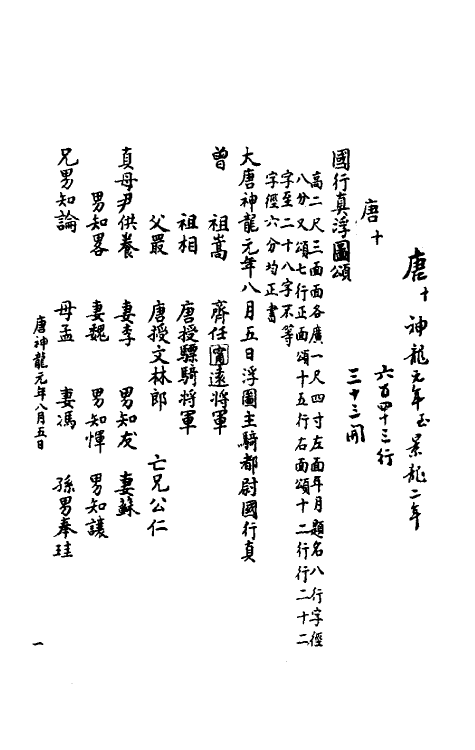 唐十 神龍元年至景龍二年
六百四十三行
三十三開
唐十
國行真浮圖頌
高二尺三面面各廣一尺四寸左面年月題名八行字徑
八分又頌七行正面頌十五行右面頌十二行行二十二
字至二十八字不等
字徑六分均正書
大唐神龍元年八月五日浮圖主騎都尉國行真
曾祖嵩 齊任甯遠將軍
祖相 唐授驃騎將軍
父最 唐授文林郎 亡兄公仁
真母尹供養 妻李 男知友 妻蘇
男知畧 妻魏 男知惲 男知讓
兄男知論 母孟 妻馮 孫男奉珪
唐神龍元年八月五日
一